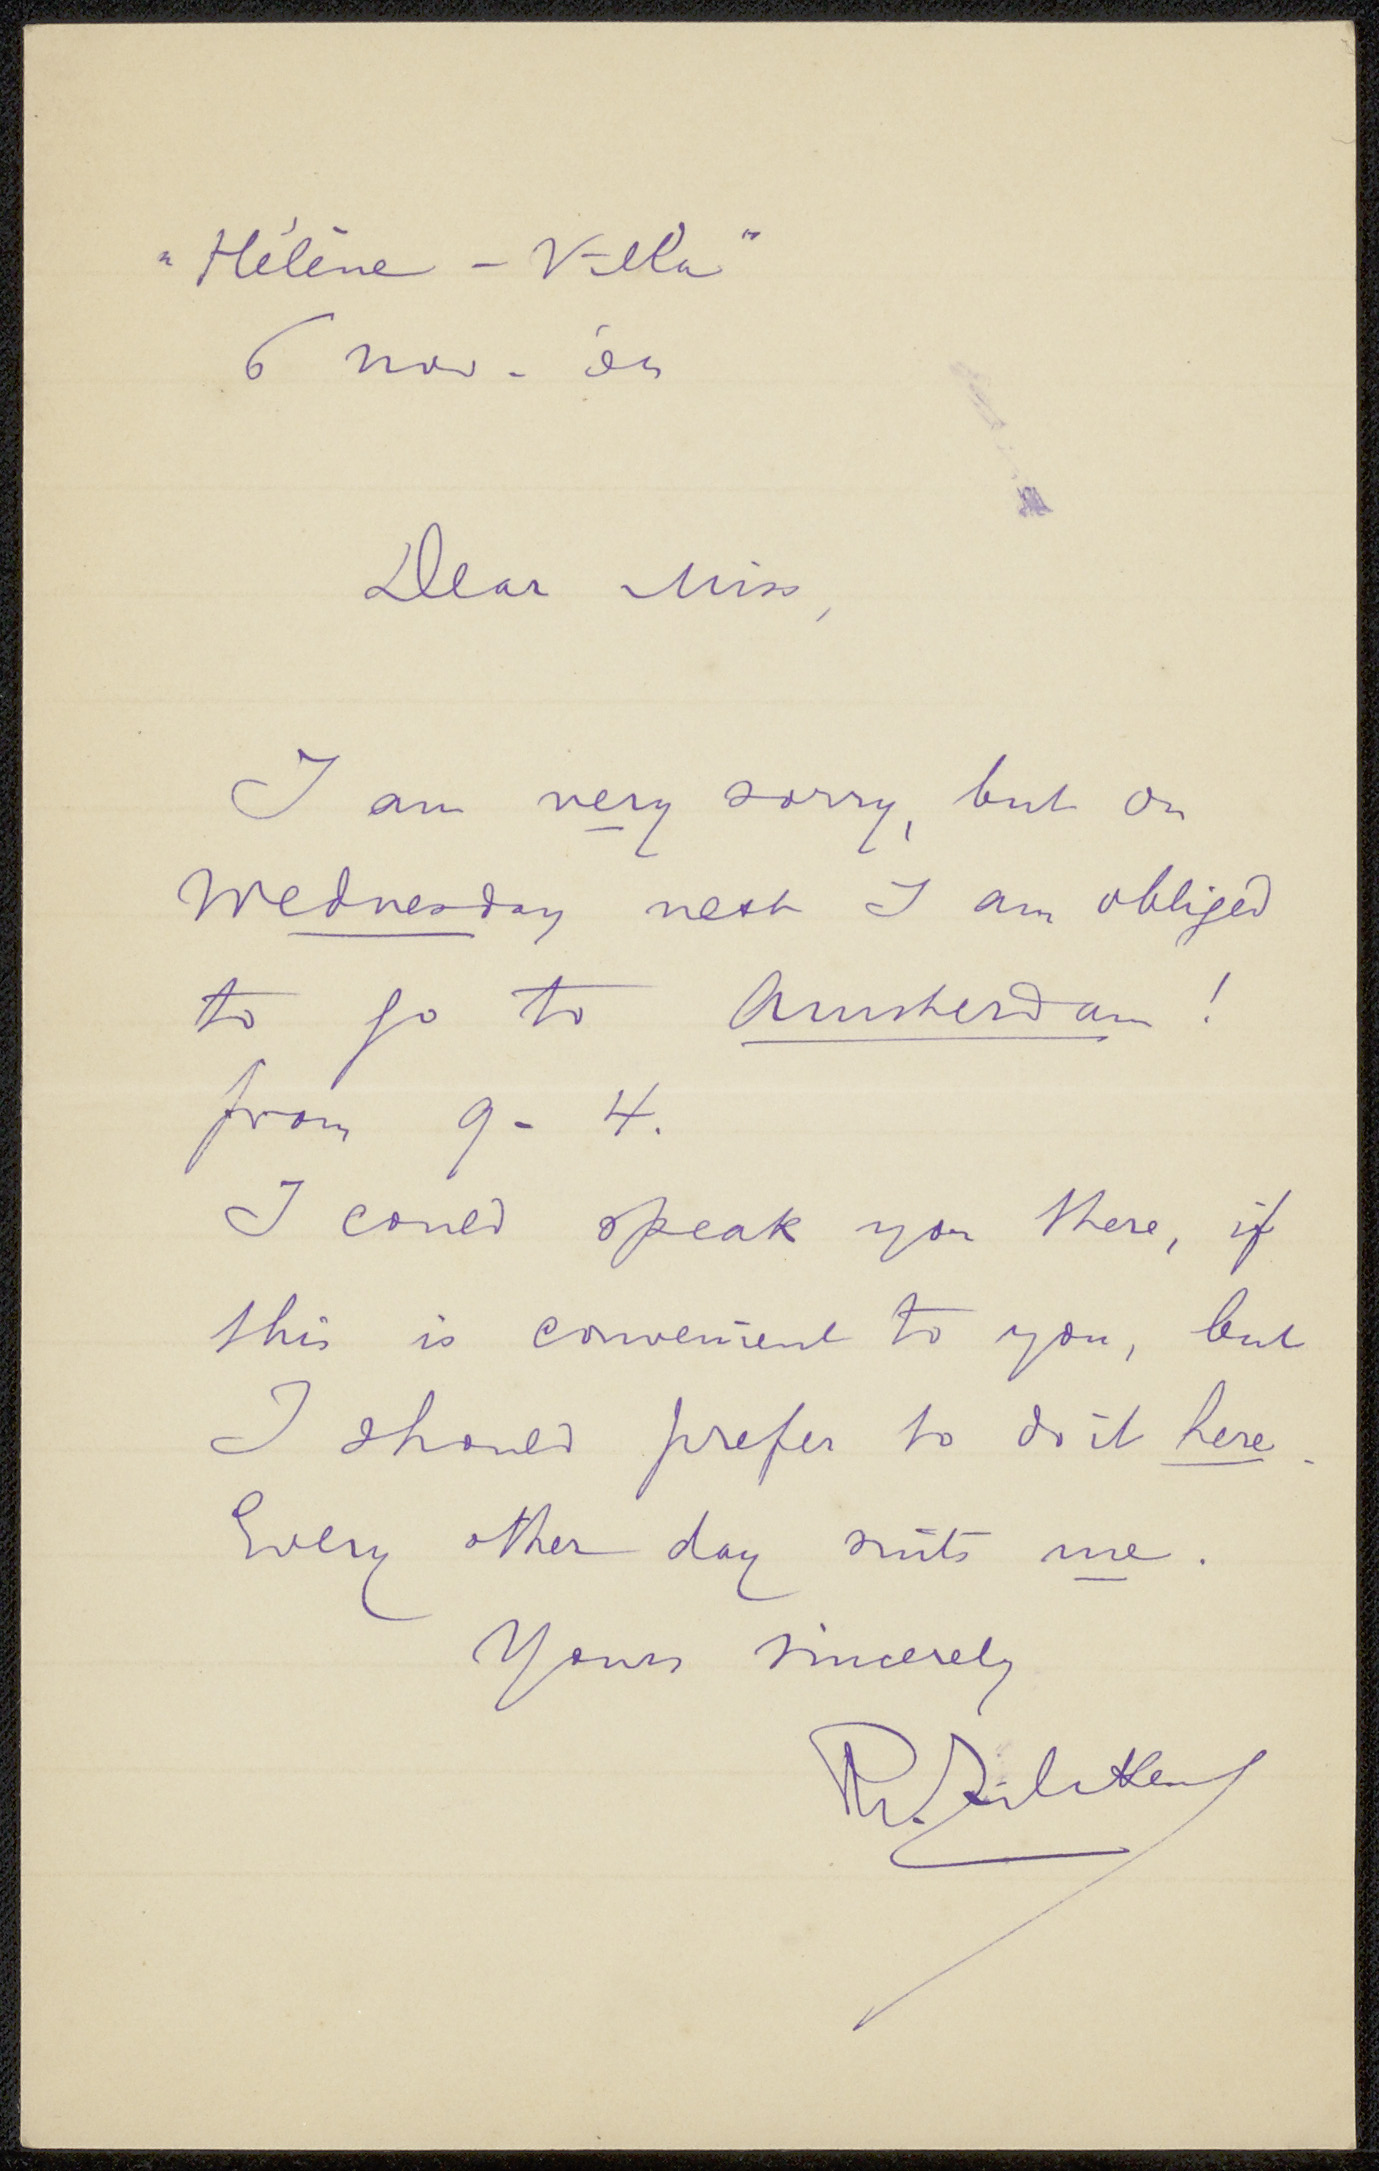 „Hélène - Villa"
6 Nov.
Dear Miss,
I am very sorry, but on
Wednesday next I am obliged
to go to Amsterdam!
from 9 - 4.
I could speak you there, if
this is convenient to you, but
I should prefer to do it here.
Every other day suits me.
Yours sincerely
Ph. Zilcken